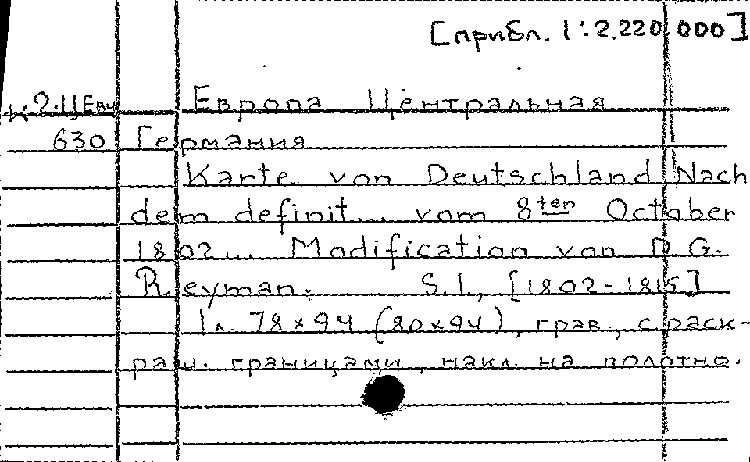 [прибл. 1:2.220.000]
к.2-ЦЕвч Европа Центральная
630 Германия
Karte von Deutschland Nach
dem definit... vom 8ten October
1802... Modification von D.G.
Reyman. S.l., [1802-1815]
1л. 78×94 (80×94), грав., с раск-
раш. границами, накл. на полотно.